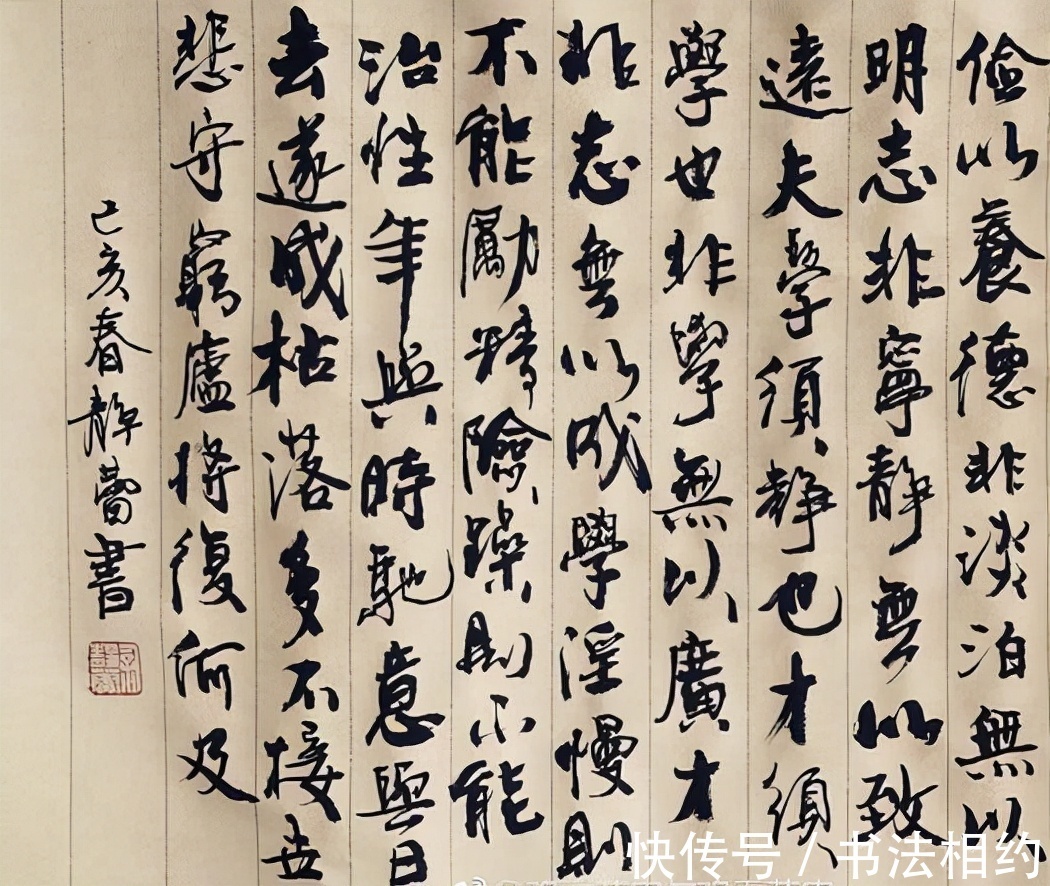 儉以養德非淡泊無以
明志非寧靜無以致
遠夫學須靜也才須
學也非學無以廣才
非志無以成學淫慢則
不能勵精險躁則不能
治性年與時馳意與日
去遂成枯落多不接世
悲守窮廬將復何及
己亥春靜蕾書
快传号/书法相约